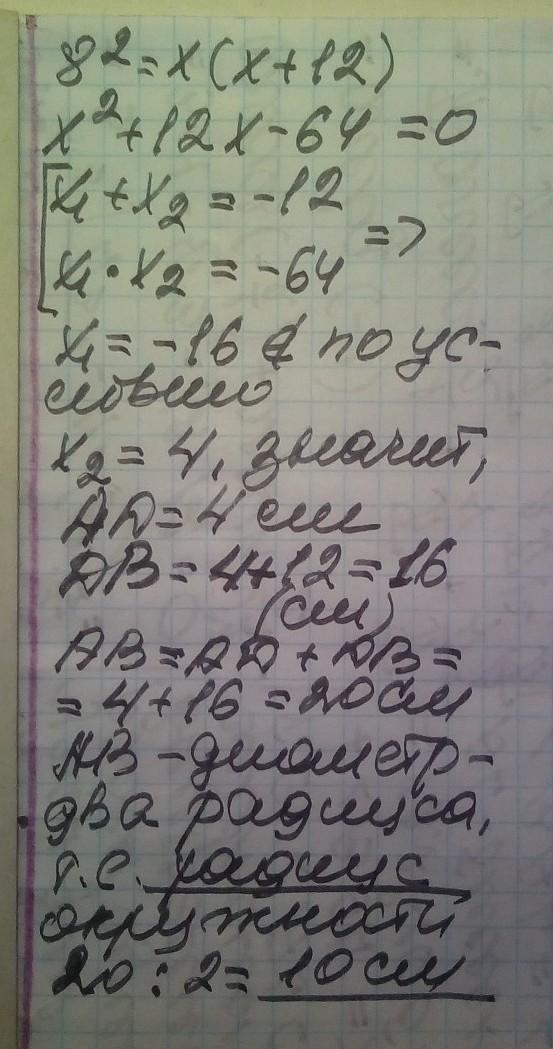 8² = x(x+12)
x² + 12x - 64 = 0
x₁ + x₂ = -12
=>
x₁ · x₂ = -64
x₁ = -16 ∉ по ус-
ловию
x₂ = 4, значит,
AD = 4 см
DB = 4+12 = 16
(см)
AB = AD + DB =
= 4 + 16 = 20 см
AB - диаметр -
два радиуса,
т.е. радиус
окружности
20 : 2 = 10 см